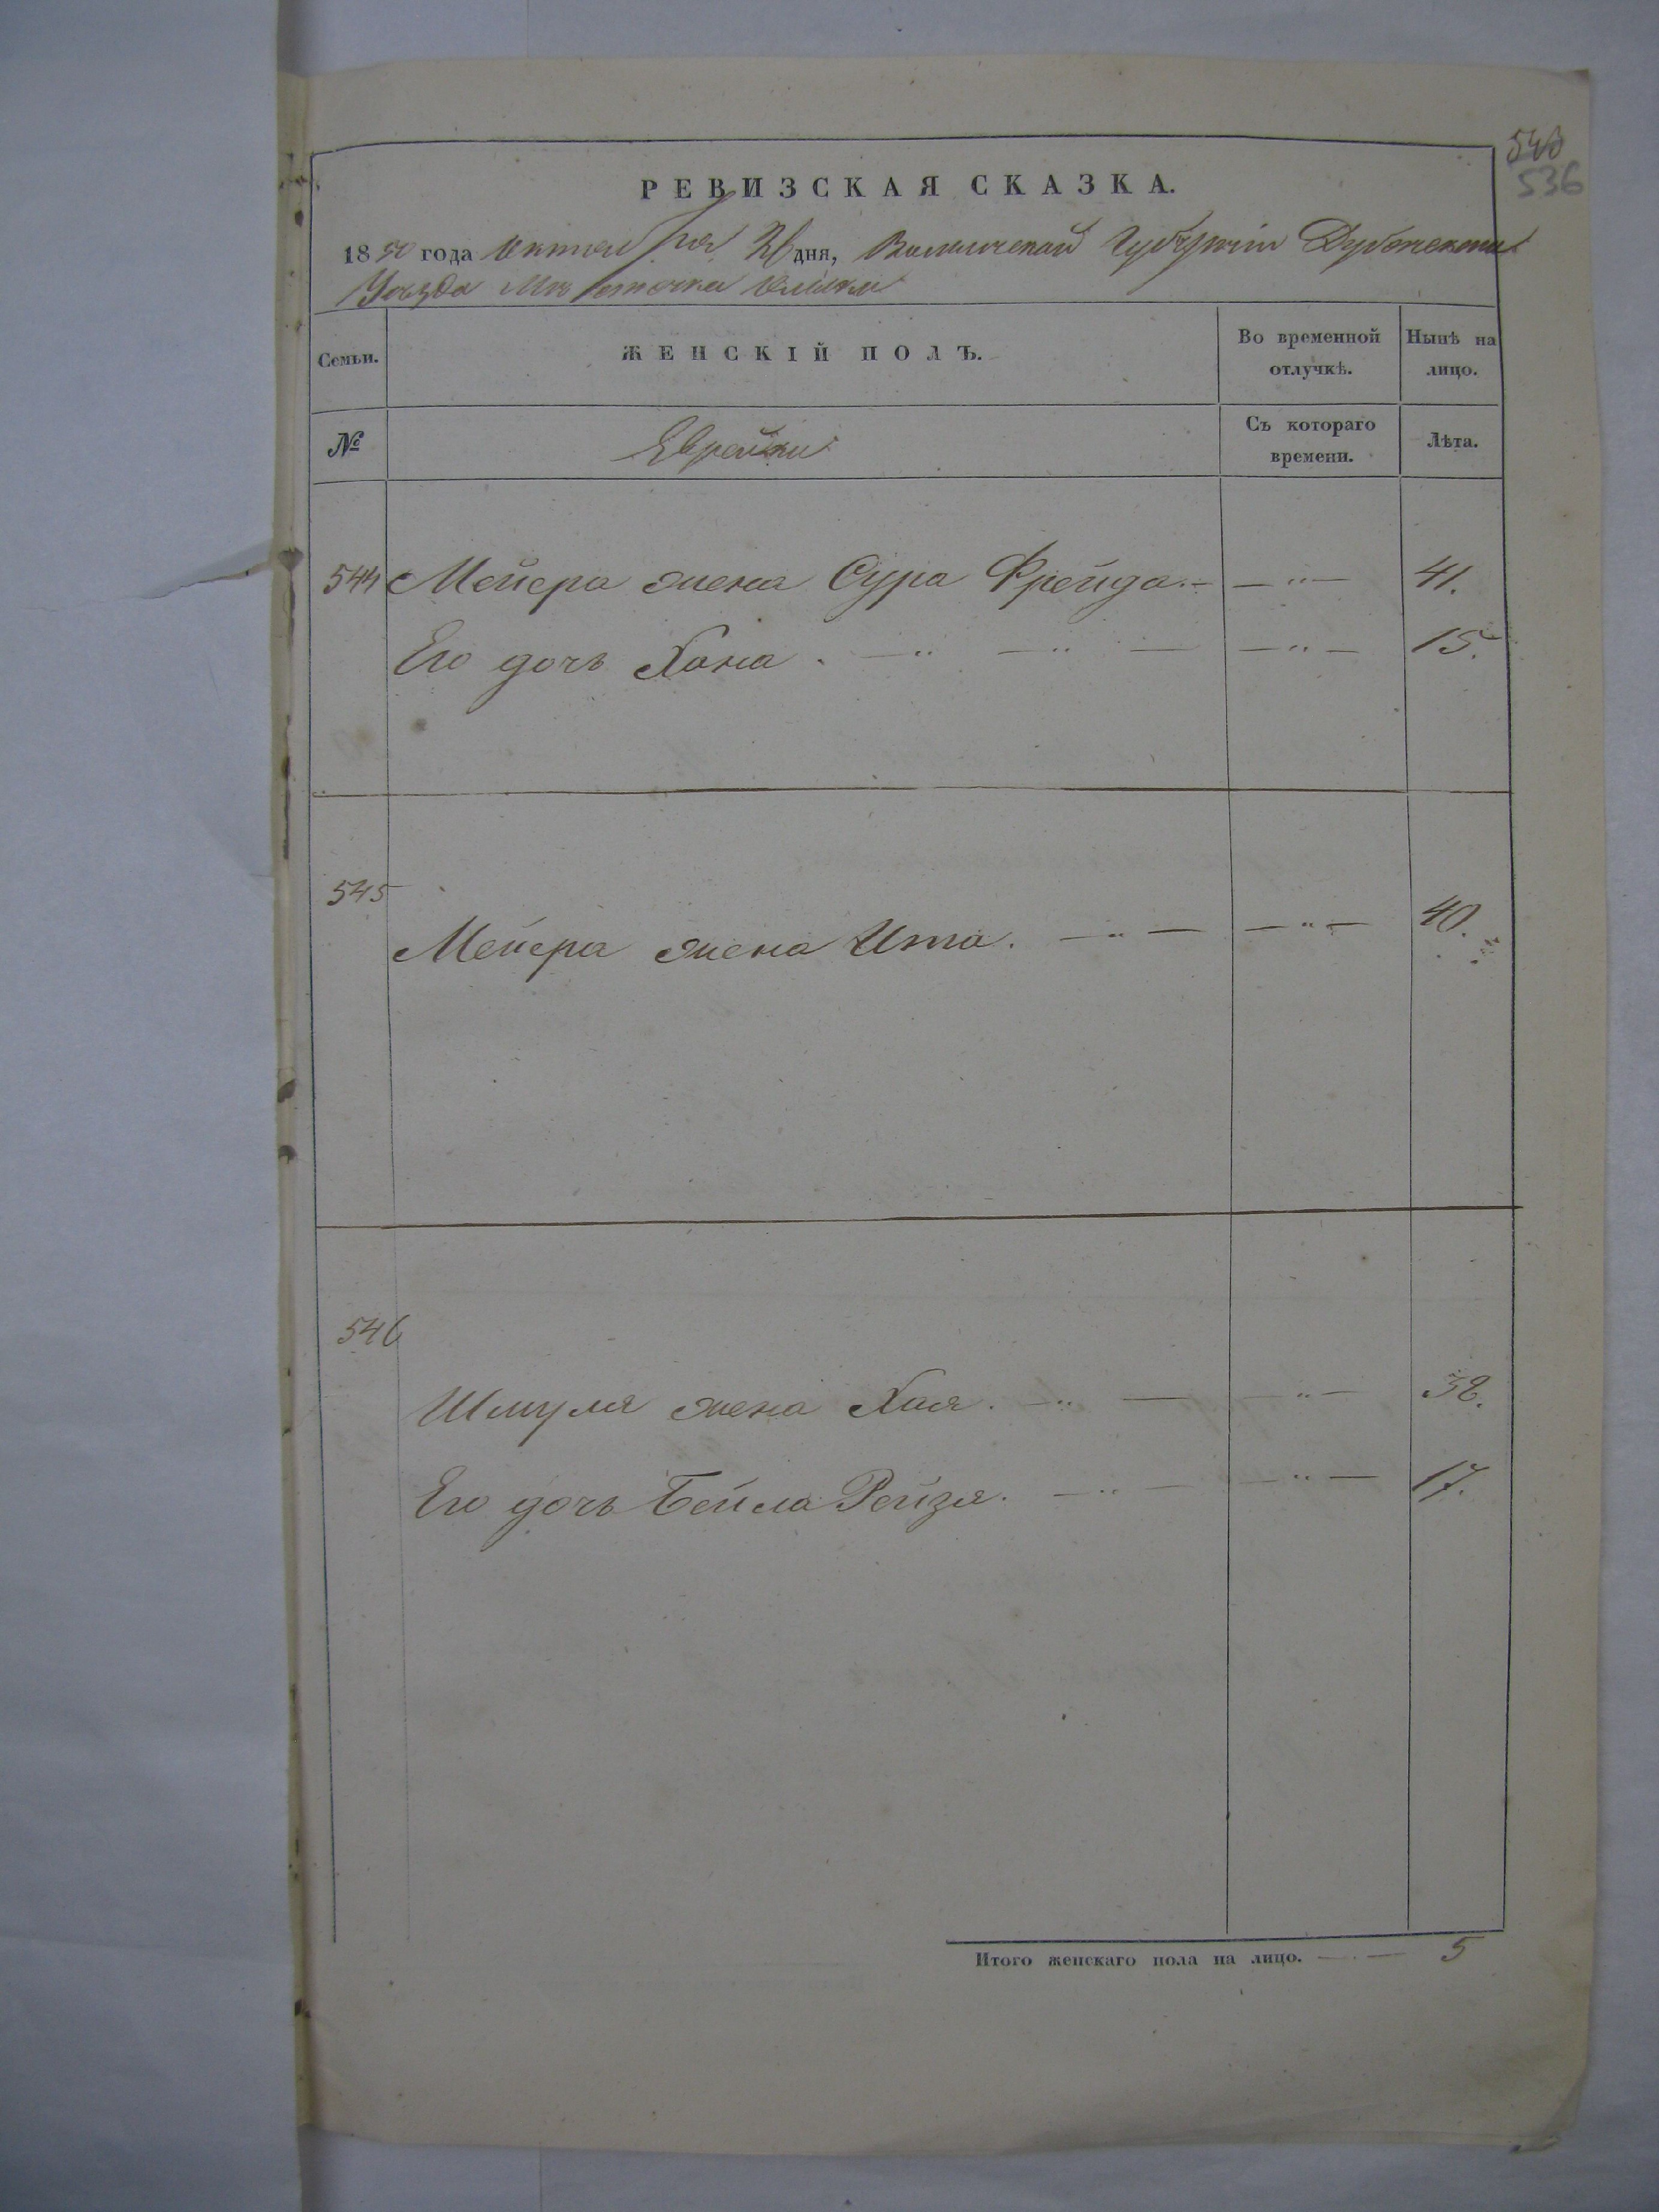 536
РЕВИЗСКАЯ СКАЗКА.
1850 года Октября 26 дня, Волынской Губерніи Дубенскаго
Уѣзда Мѣстечка Олыки
Семьи.
ЖЕНСКІЙ ПОЛЪ.
Во временной отлучкѣ.
Нынѣ на лицо.
№
Еврейки
Съ котораго времени.
Лѣта.
544 Мейера жена Сура Фрейда. — — " — 41.
Его дочь Хана. — " — " — — " — 15.
545
Мейера жена Ита. — " — — " — 40.
546
Шмуля жена Хая. — " — — " — 38.
Его дочь Бейла Рейзя. — " — — " — 17.
Итого женскаго пола на лицо. — · — 5